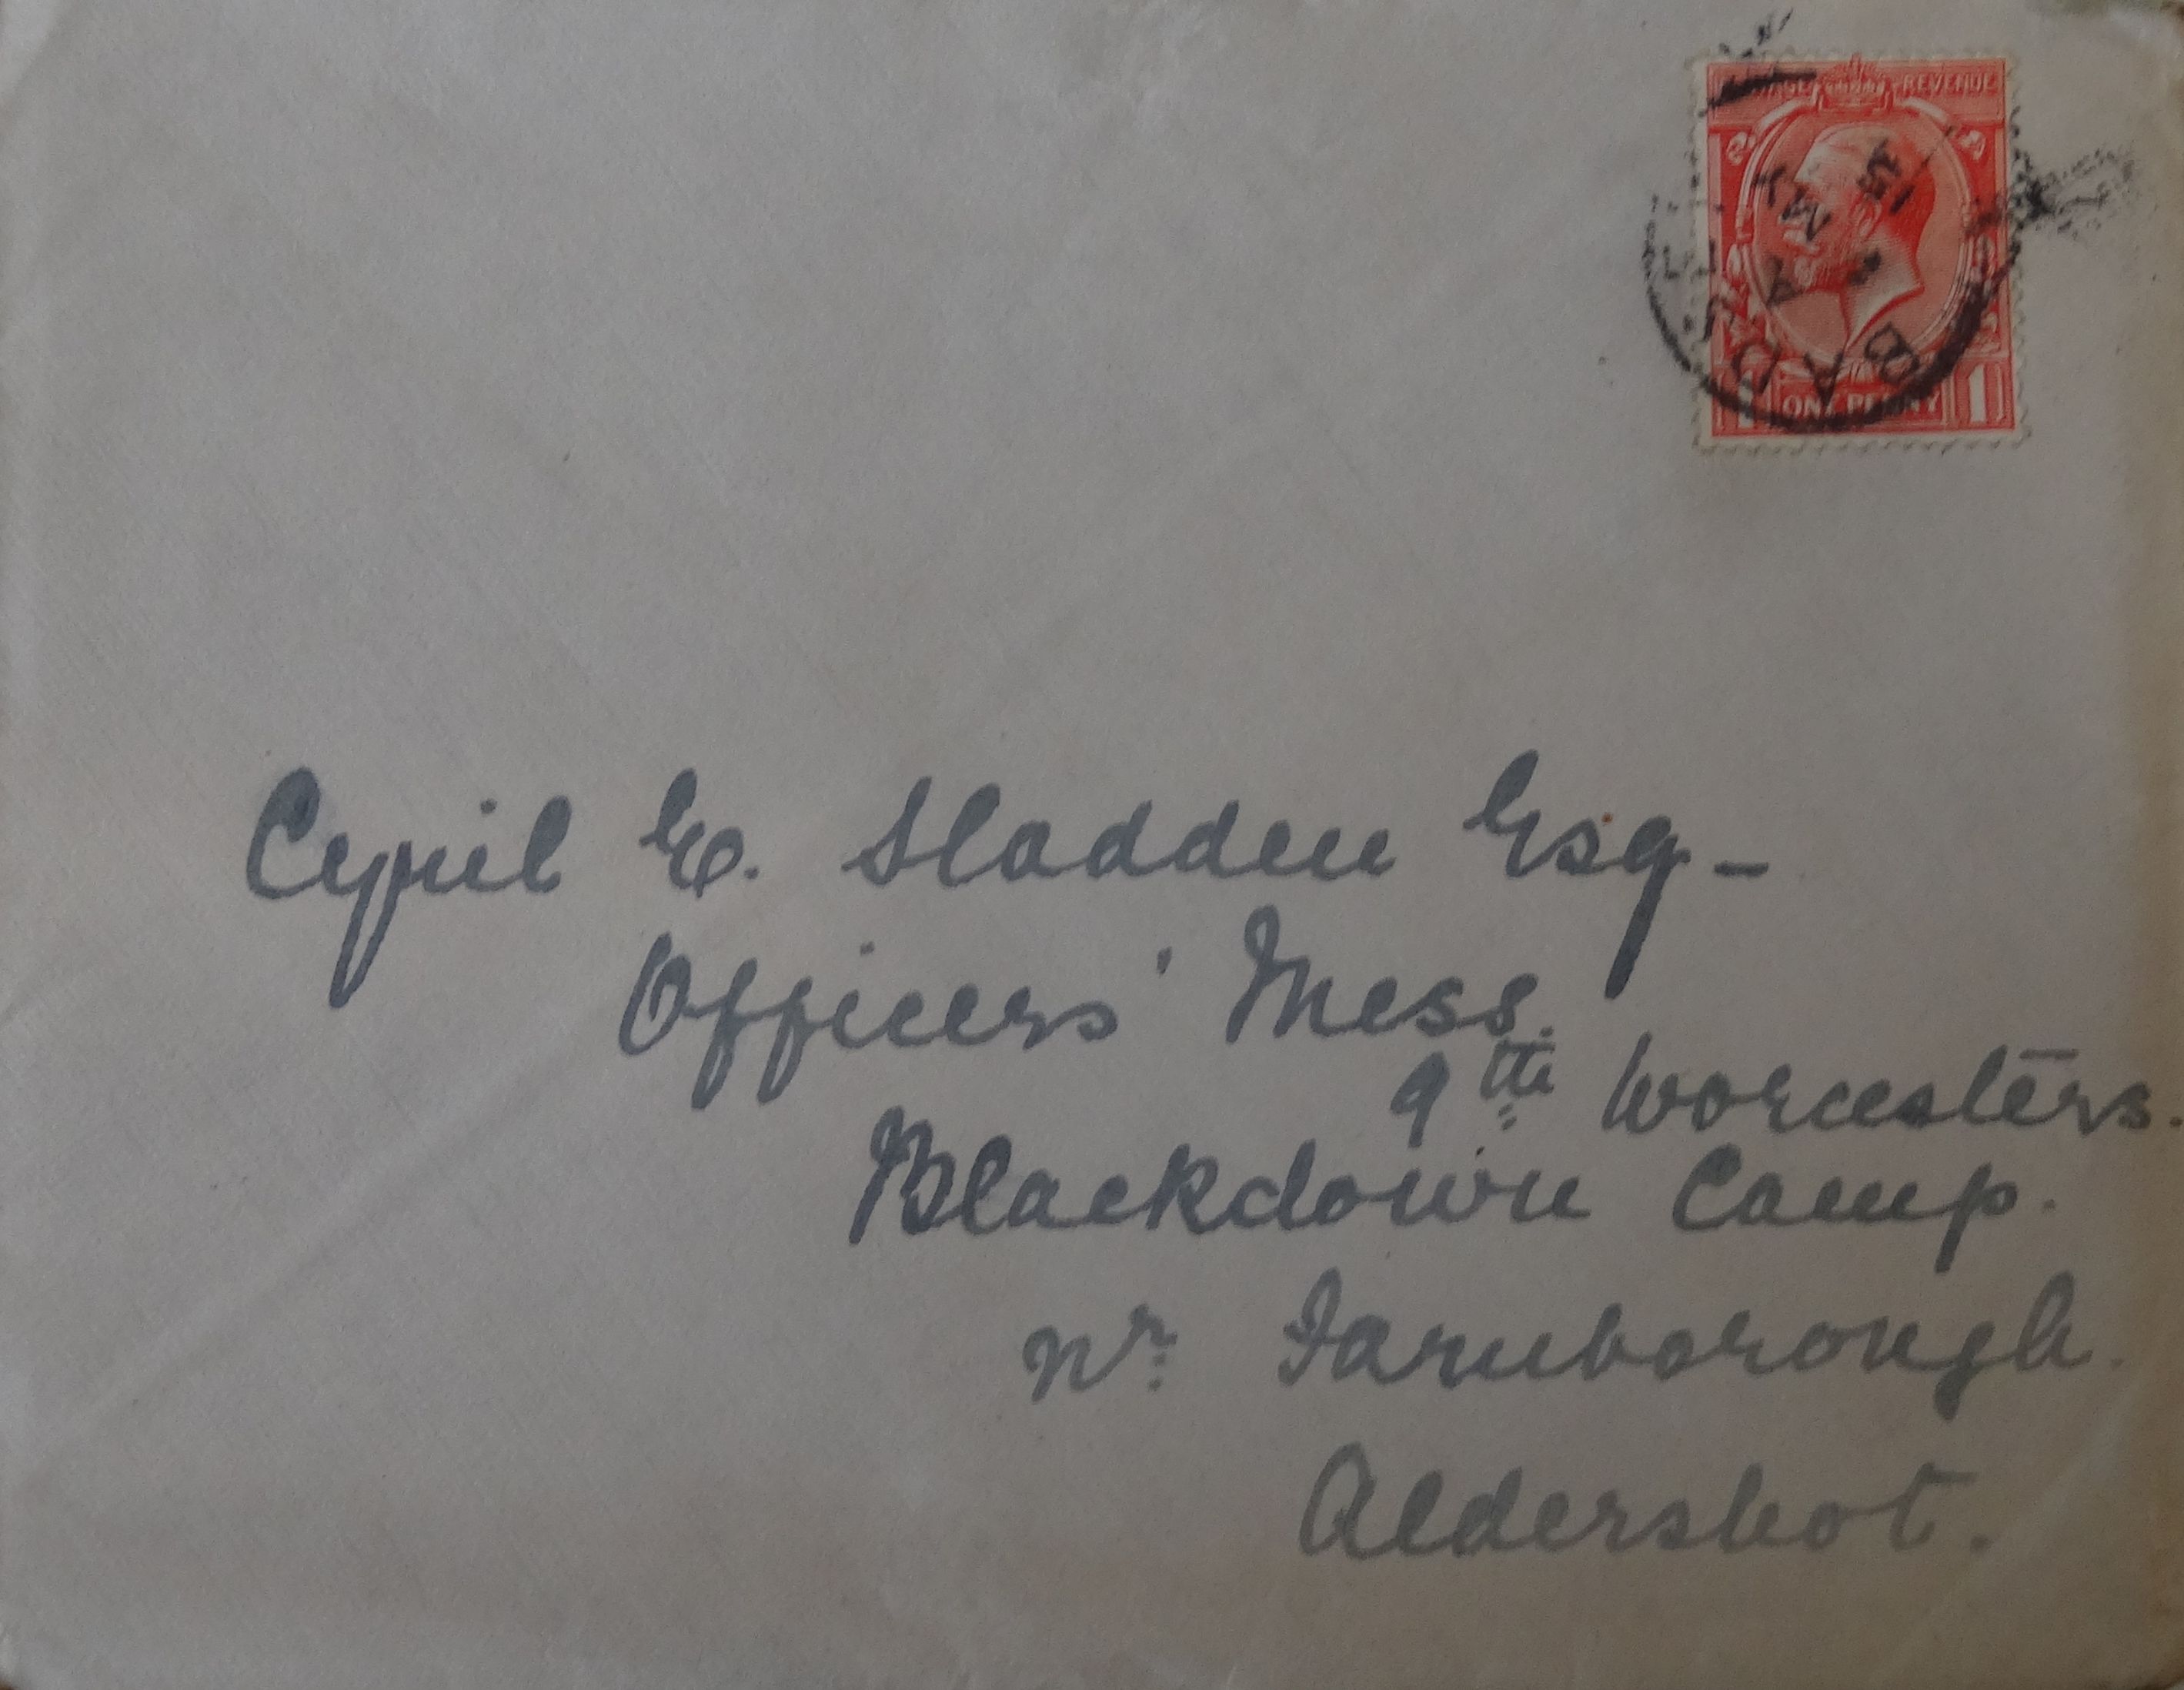 REVENUE
BAD
A
MY
15
ONE PENNY
1
Cyril E. Sladden Esq-
Officers' Mess.
9th Worcesters.
Blackdown Camp.
Nr. Farnborough.
Aldershot.